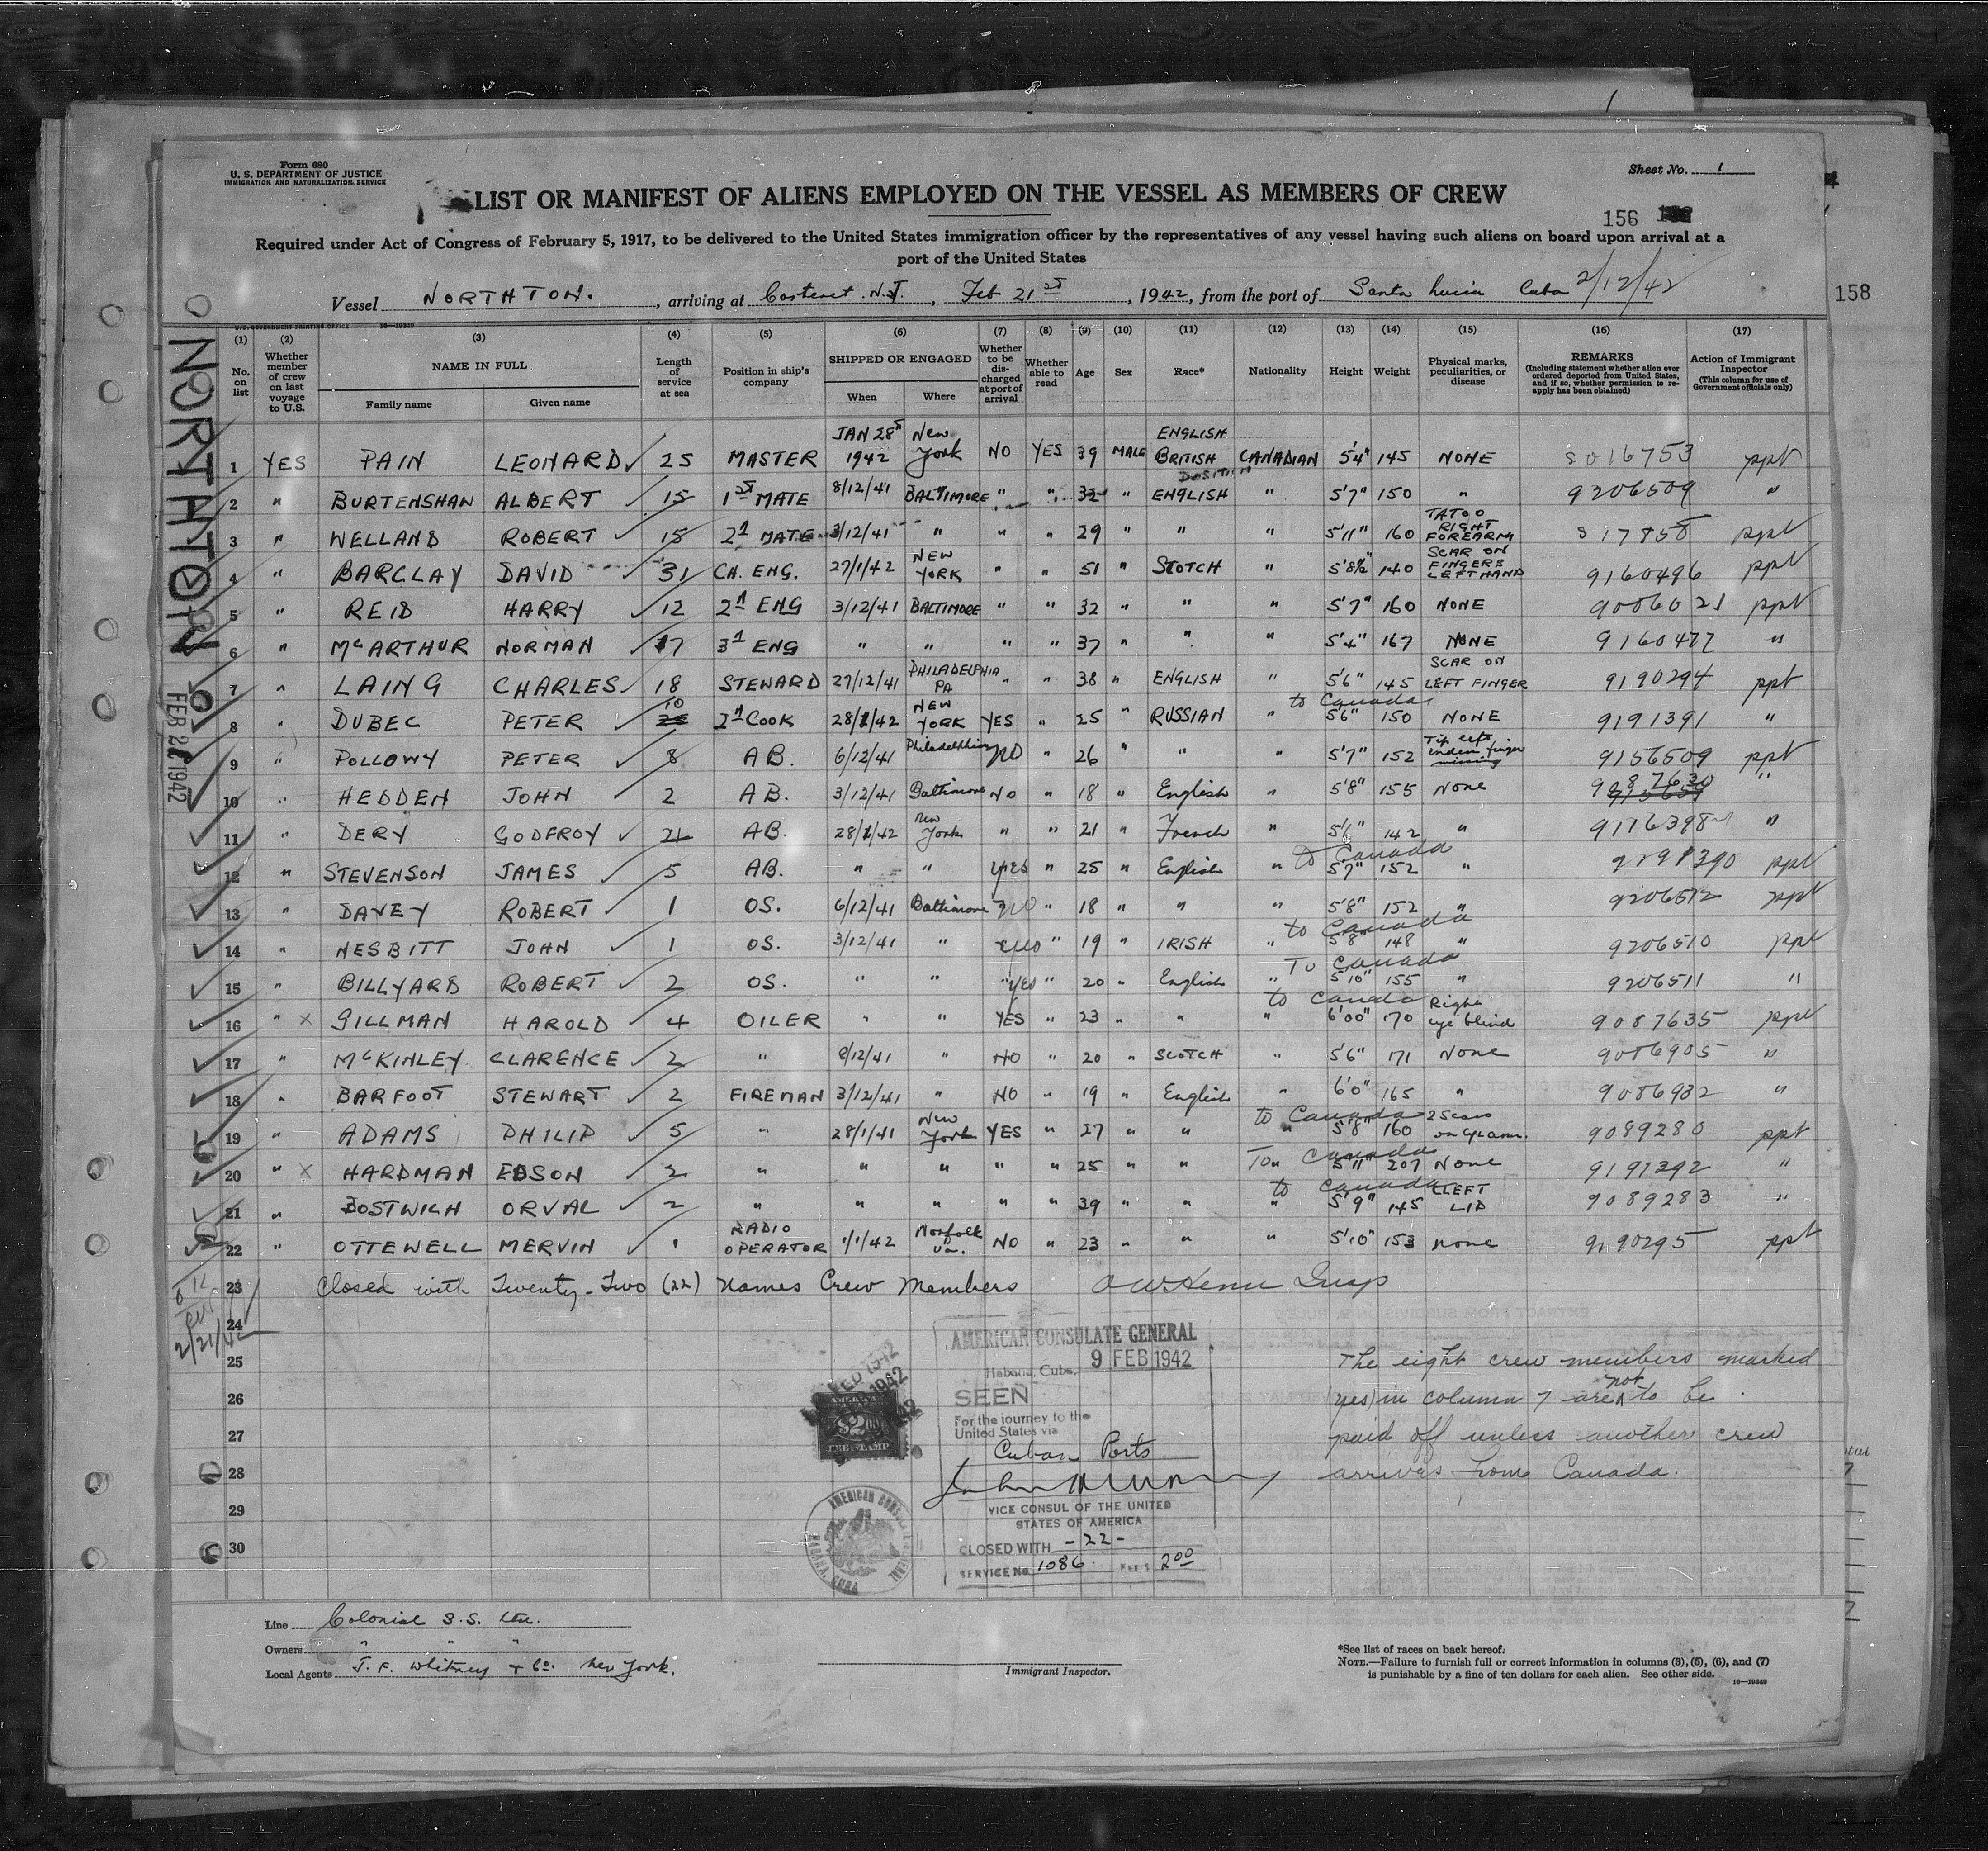 1
Form 680
U. S. DEPARTMENT OF JUSTICE
IMMIGRATION AND NATURALIZATION SERVICE
Sheet No. 1
LIST OR MANIFEST OF ALIENS EMPLOYED ON THE VESSEL AS MEMBERS OF CREW
156
Required under Act of Congress of February 5, 1917, to be delivered to the United States immigration officer by the representatives of any vessel having such aliens on board upon arrival at a
port of the United States
Vessel NORTHTON. , arriving at Carteret N.J. , Feb 21st , 1942, from the port of Santa Lucia Cuba 2/12/42
158
U.S. GOVERNMENT PRINTING OFFICE 16—19349
NORTHTON
FEB 21 1942
(1) (2) (3) (4) (5) (6) (7) (8) (9) (10) (11) (12) (13) (14) (15) (16) (17)
No. on list
Whether member of crew on last voyage to U.S.
NAME IN FULL
Family name Given name
Length of service at sea
Position in ship's company
SHIPPED OR ENGAGED
When Where
Whether to be discharged at port of arrival
Whether able to read
Age
Sex
Race*
Nationality
Height
Weight
Physical marks, peculiarities, or disease
REMARKS
(Including statement whether alien ever ordered deported from United States, and if so, whether permission to reapply has been obtained)
Action of Immigrant Inspector
(This column for use of Government officials only)
1 YES PAIN LEONARD 25 MASTER JAN 28th 1942 New York NO YES 39 MALE ENGLISH BRITISH CANADIAN 5'4" 145 NONE 8016753 ppt
2 " BURTENSHAN ALBERT 15 1st MATE 8/12/41 BALTIMORE " " 32 " ENGLISH " 5'7" 150 " 9206509 "
3 " WELLAND ROBERT 15 2d MATE 3/12/41 " " " 29 " " " 5'11" 160 TATOO RIGHT FOREARM ppt
4 " BARCLAY DAVID 31 CH. ENG. 27/1/42 NEW YORK " " 51 " SCOTCH " 5'8½ 140 SCAR ON FINGERS LEFT HAND 9160496 ppt
5 " REID HARRY 12 2d ENG 3/12/41 BALTIMORE " " 32 " " " 5'7" 160 NONE 9086021 ppt
6 " McARTHUR NORMAN 17 3d ENG " " " " 37 " " " 5'4" 167 NONE 9160477 "
7 " LAING CHARLES 18 STEWARD 27/12/41 PHILADELPHIA PA " " 38 " ENGLISH " 5'6" 145 SCAR ON LEFT FINGER 9190294 ppt
8 " DUBEC PETER 10 2d COOK 28/1/42 NEW YORK YES " 25 " RUSSIAN " to Canada 5'6" 150 NONE 9191391 "
9 " POLLOWY PETER 8 AB. 6/12/41 Philadelphia NO " 26 " " " 5'7" 152 Tip left index finger missing 9156509 ppt
10 " HEDDEN JOHN 2 AB. 3/12/41 Baltimore NO " 18 " English " 5'8" 155 None 9087630 "
11 " DERY GODFROY 21 AB. 28/1/42 New York " " 21 " French " 5'6" 142 " 9116398 "
12 " STEVENSON JAMES 5 AB. " " YES " 25 " English " to Canada 5'7" 152 " 9191390 ppt
13 " DAVEY ROBERT 1 OS. 6/12/41 Baltimore NO " 18 " " " 5'8" 152 " 9206512 ppt
14 " NESBITT JOHN 1 OS. 3/12/41 " " 19 " IRISH " to Canada 5'8" 148 " 9206510 ppt
15 " BILLYARD ROBERT 2 OS. " " yes " 20 " English " To Canada 5'10" 155 " 9206511 "
16 " X GILLMAN HAROLD 4 OILER " " YES " 23 " " " to Canada 6'00" 170 Right eye blind 9087635 ppt
17 " McKINLEY CLARENCE 2 " 8/12/41 " NO " 20 " SCOTCH " 5'6" 171 None 9086905 "
18 " BARFOOT STEWART 2 FIREMAN 3/12/41 " NO " 19 " English " 6'0" 165 " 9086932 "
19 " ADAMS PHILIP 5 " 28/1/41 New York YES " 27 " " " to Canada 5'8" 160 2 Scars on arm. 9089280 ppt
20 " X HARDMAN EBSON 2 " " " " " 25 " " " To Canada 5'11" 207 None 9191392 "
21 " BOSTWICH ORVAL 2 " " " " " 39 " " " to Canada 5'9" 145 LEFT LID 9089283 "
22 " OTTEWELL MERVIN 1 RADIO OPERATOR 1/1/42 Norfolk Va. NO " 23 " " " 5'10" 153 None 9190295 ppt
23 Closed with Twenty-Two (22) Names Crew Members Insp
2/21/42
24
25
26
27
28
29
30
AMERICAN CONSULATE GENERAL
9 FEB 1942
Habana, Cuba,
SEEN
For the journey to the
United States via
Cuban Ports
VICE CONSUL OF THE UNITED
STATES OF AMERICA
CLOSED WITH -22-
SERVICE No. 1086 2 00
$2.00
FEE STAMP
AMERICAN CONSULATE GENERAL
HABANA, CUBA
The eight crew members marked
yes in column 7 are not to be
paid off unless another crew
arrives from Canada.
Line Colonial S.S. Ltd.
Owners " " "
Local Agents J. F. Whitney & Co. New York.
Immigrant Inspector.
*See list of races on back hereof.
NOTE.—Failure to furnish full or correct information in columns (3), (5), (6), and (7)
is punishable by a fine of ten dollars for each alien. See other side.
16—19349